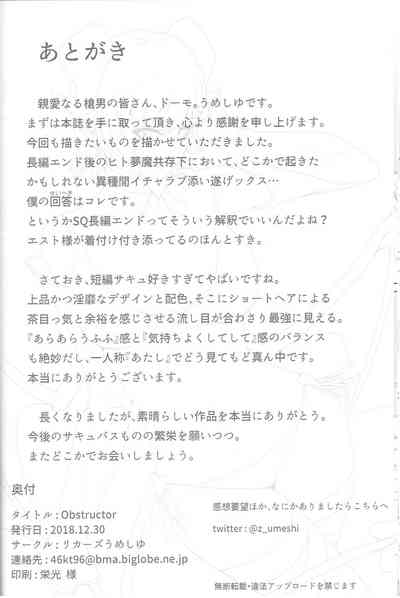 あとがき
親愛なる槍男の皆さん、ドーモ。うめしゆです。
まずは本誌を手に取って頂き、心より感謝を申し上げます。
今回も描きたいものを描かせていただきました。
長編エンド後のヒト夢魔共存下において、どこかで起きた
かもしれない異種間イチャラブ添い遂げックス…
僕の回答はコレです。
というかSQ長編エンドってそういう解釈でいいんだよね?
エスト様が着付け付き添ってるのほんとすき。
さておき、短編サキュ好きすぎてやばいですね。
上品かつ淫靡なデザインと配色、そこにショートヘアによる
茶目っ気と余裕を感じさせる流し目が合わさり最強に見える。
『あらあらうふふ』感と『気持ちよくしてして』感のバランス
も絶妙だし、一人称『あたし』でどう見てもど真ん中です。
本当にありがとうございます。
長くなりましたが、素晴らしい作品を本当にありがとう。
今後のサキュバスものの繁栄を願いつつ。
またどこかでお会いしましょう。
奥付
タイトル : Obstructor
発行日 : 2018.12.30
サークル : リカーズうめしゆ
連絡先 : 46kt96@bma.biglobe.ne.jp
印刷 : 栄光 様
感想要望ほか、なにかありましたらこちらへ
twitter : @z_umeshi
無断転載・違法アップロードを禁じます